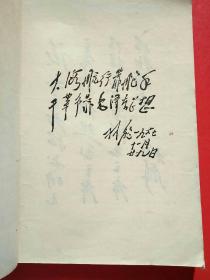 大海航行靠舵手
干革命靠毛泽东思想
林彪 一九六七
十一月廿九日